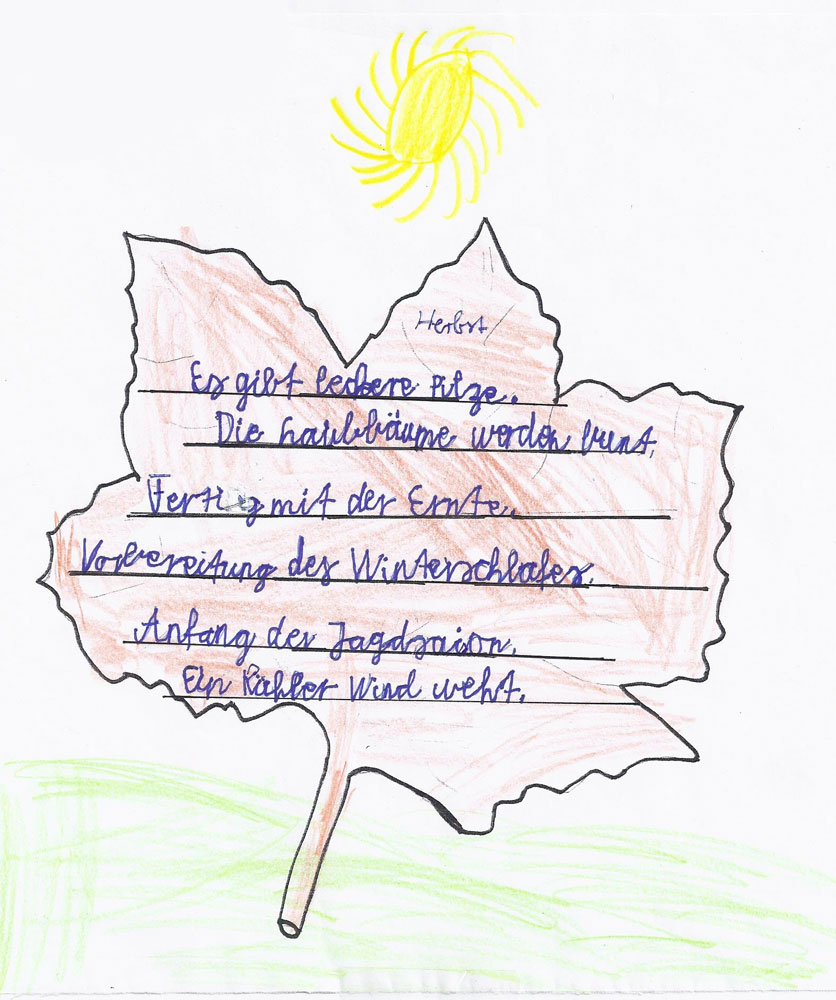 Herbst
Es gibt leckere Pilze.
Die Laubbäume werden bunt.
Fertig mit der Ernte.
Vorbereitung des Winterschlafes.
Anfang der Jagdsaion.
Ein kühler Wind weht.